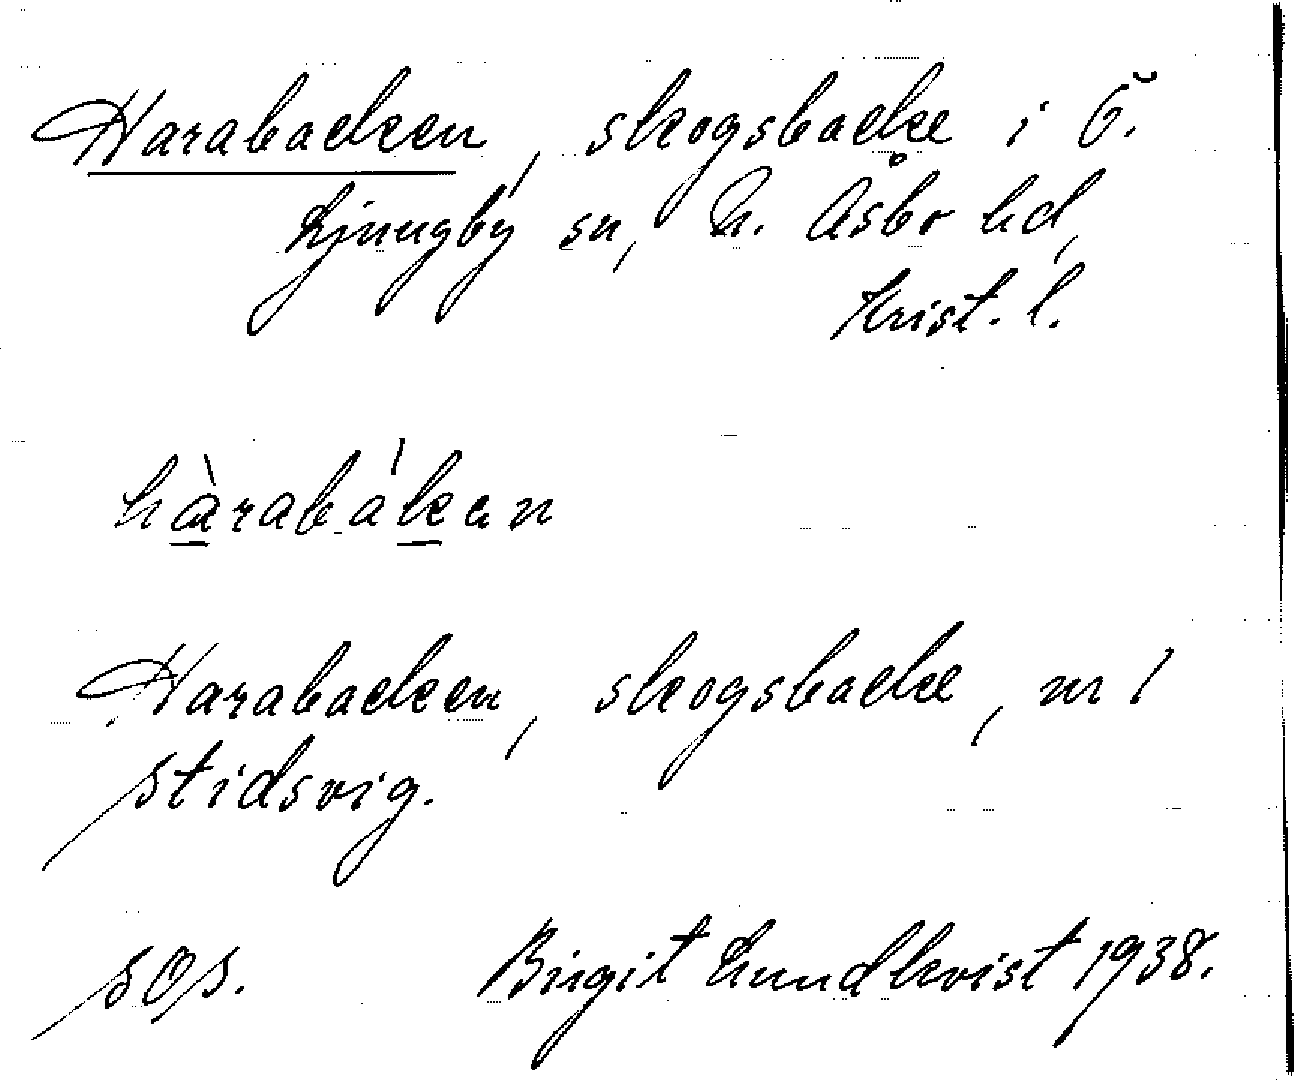 Harabacken, skogsbacke i Ö.
Ljungby sn, N. Åsbo hd,
Krist. l.
hàrabákan
Harabacken, skogsbacke, nr 1
Stidsvig.
SOS. Birgit Lundkvist 1938.